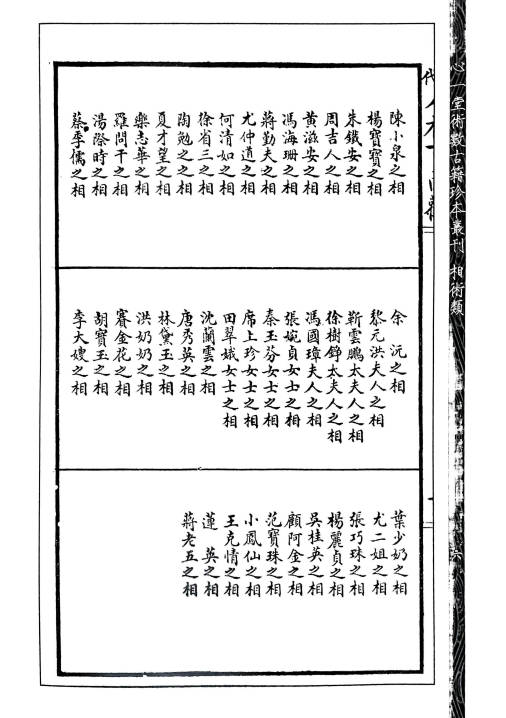 心一堂術數古籍珍本叢刊 相術類
陳小泉之相
楊寶寶之相
朱鐵安之相
周吉人之相
黃滋安之相
馮海珊之相
蔣勤夫之相
尤仲道之相
何清如之相
徐省三之相
陶勉之之相
夏才望之相
樂志華之相
羅問干之相
湯際時之相
蔡季儒之相
余沅之相
黎元洪夫人之相
靳雲鵬太夫人之相
徐樹錚太夫人之相
馮國璋夫人之相
張婉貞女士之相
秦玉芬女士之相
席上珍女士之相
田翠娥女士之相
沈蘭雲之相
唐秀英之相
林黛玉之相
洪奶奶之相
賽金花之相
胡寶玉之相
李大嫂之相
葉少奶之相
尤二姐之相
張巧珠之相
楊麗貞之相
吳桂英之相
顧阿金之相
范寶珠之相
小鳳仙之相
王克情之相
蓮英之相
蔣老五之相